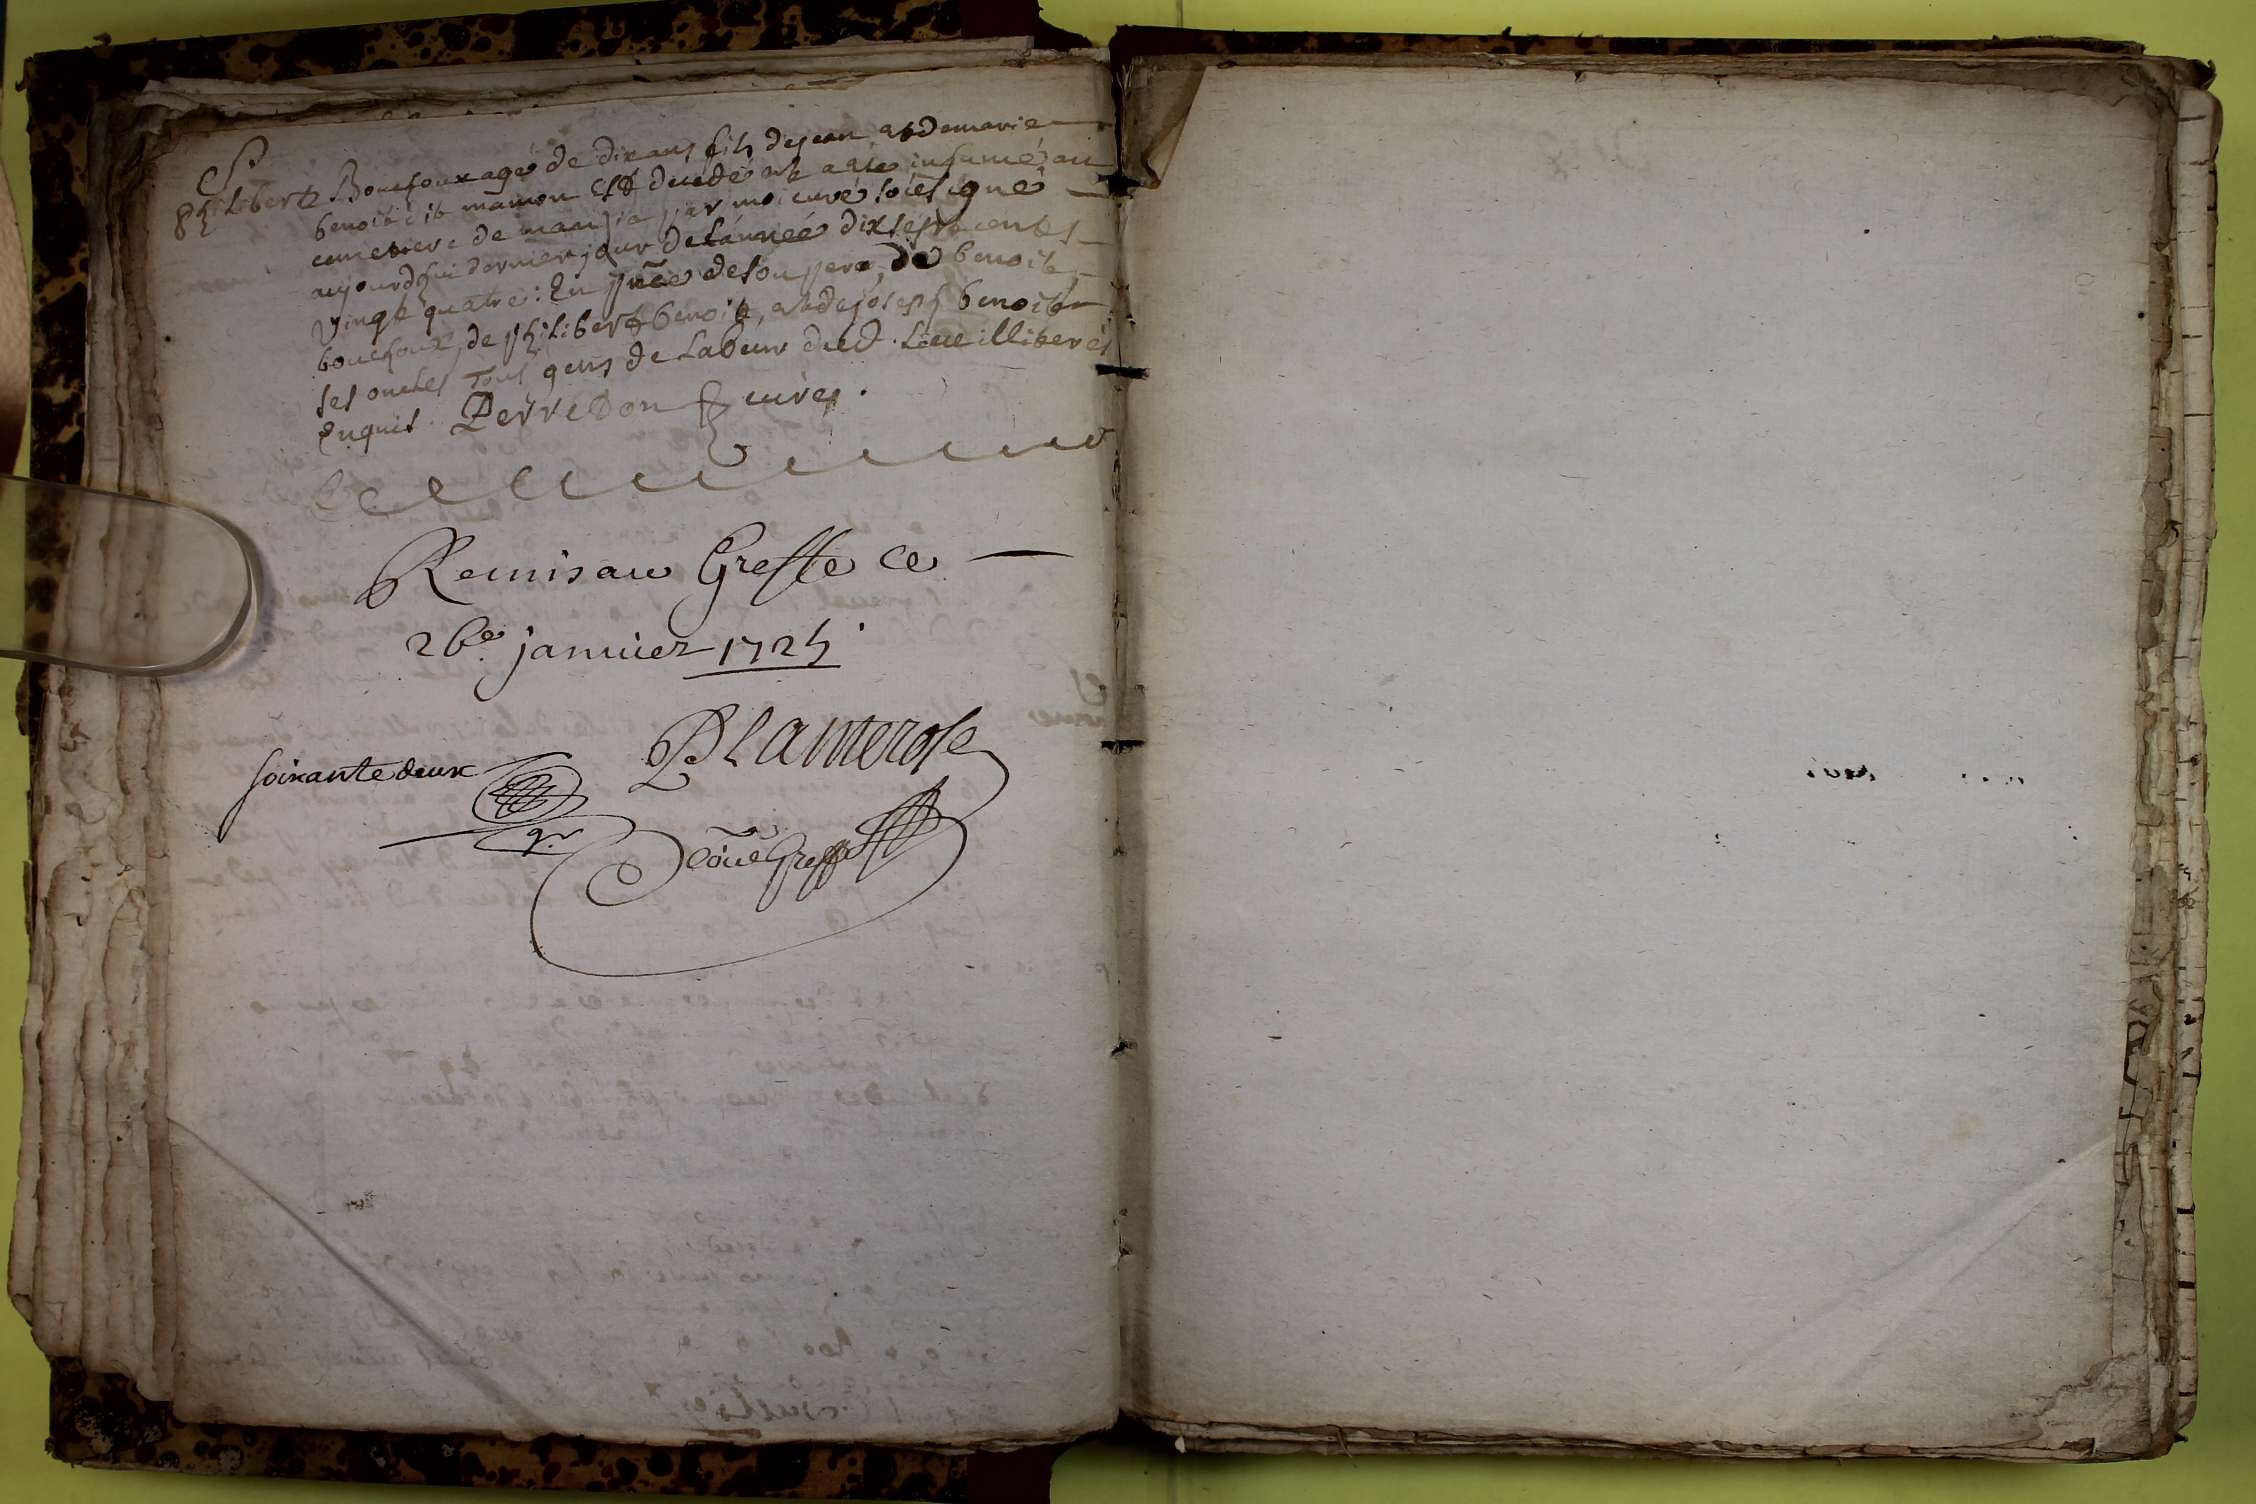 S
philibert Boucfoux agé de dix ans fils de jean et de marie
benoit dit mamon est decedé et a été inhumé au
cemetiere de par moi curé soussigné
aujourdhui dernier jour de l'année dix sept cents
vingt quatre : En pnce de son pere, de benoit
boucfoux, de philibert benoit, et de joseph benoit
ses oncles tous gens de labeur dud. lieu illiterés
enquis. Perredon curé.
Remis au Greffe ce
26e. janvier 1725
Planterose
soixante deux
Greff